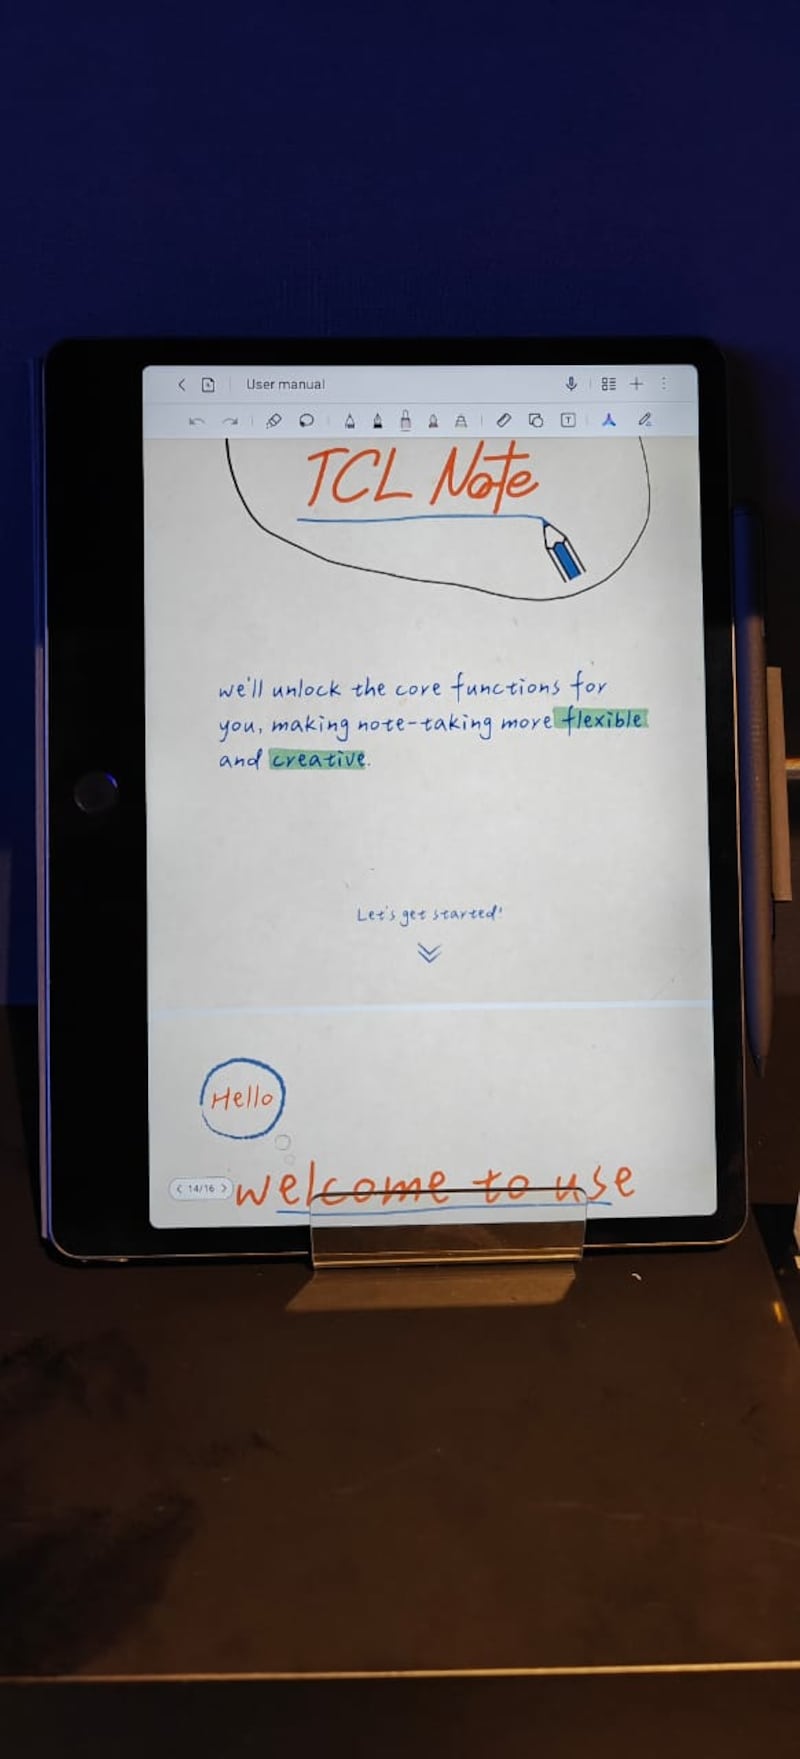 User manual
TCL Note
we'll unlock the core functions for
you, making note-taking more flexible
and creative.
Let's get started!
Hello
14/16
welcome to use